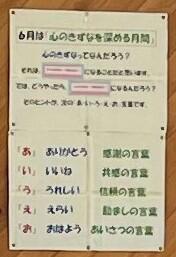 6月は「心のきずなを深める月間」
心のきずなってなんだろう？
それは、 になることだと思います。
では、どうやったら、 になれるんだろう？
そのヒントが、次の「あ・い・う・え・お」言葉です。
「あ」 ありがとう 感謝の言葉
「い」 いいね 共感の言葉
「う」 うれしい 信頼の言葉
「え」 えらい 励ましの言葉
「お」 おはよう あいさつの言葉